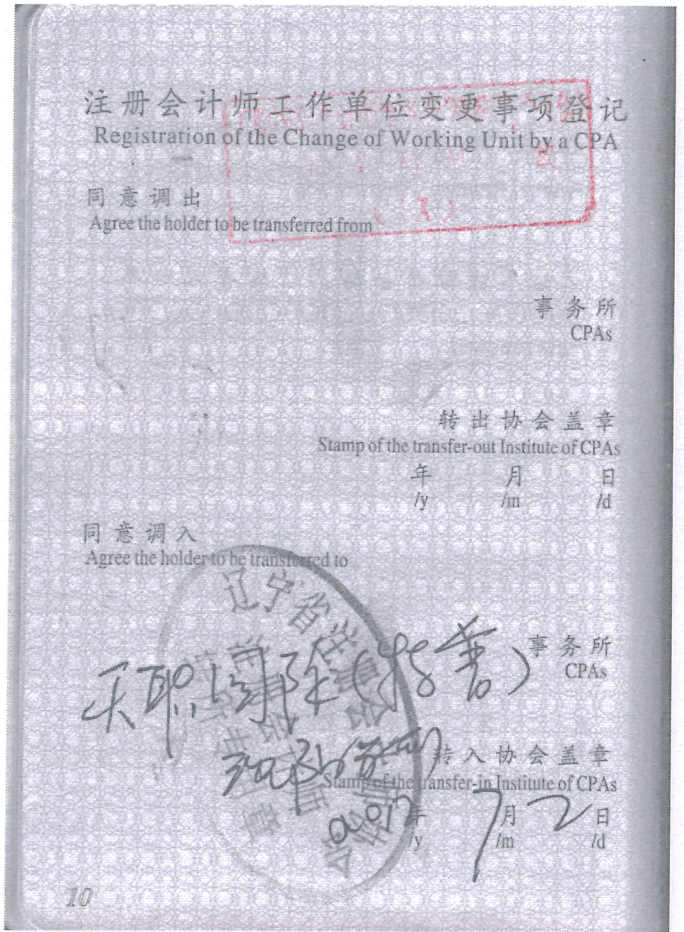 注册会计师工作单位变更事项登记
Registration of the Change of Working Unit by a CPA
同意调出
Agree the holder to be transferred from
事务所
CPAs
转出协会盖章
Stamp of the transfer-out Institute of CPAs
年 月 日
/y /m /d
同意调入
Agree the holder to be transferred to
辽宁省注册会
事务所
CPAs
天职国际(特普)
沈阳分所
转入协会盖章
Stamp of the transfer-in Institute of CPAs
年 7月 2日
/y /m /d
10